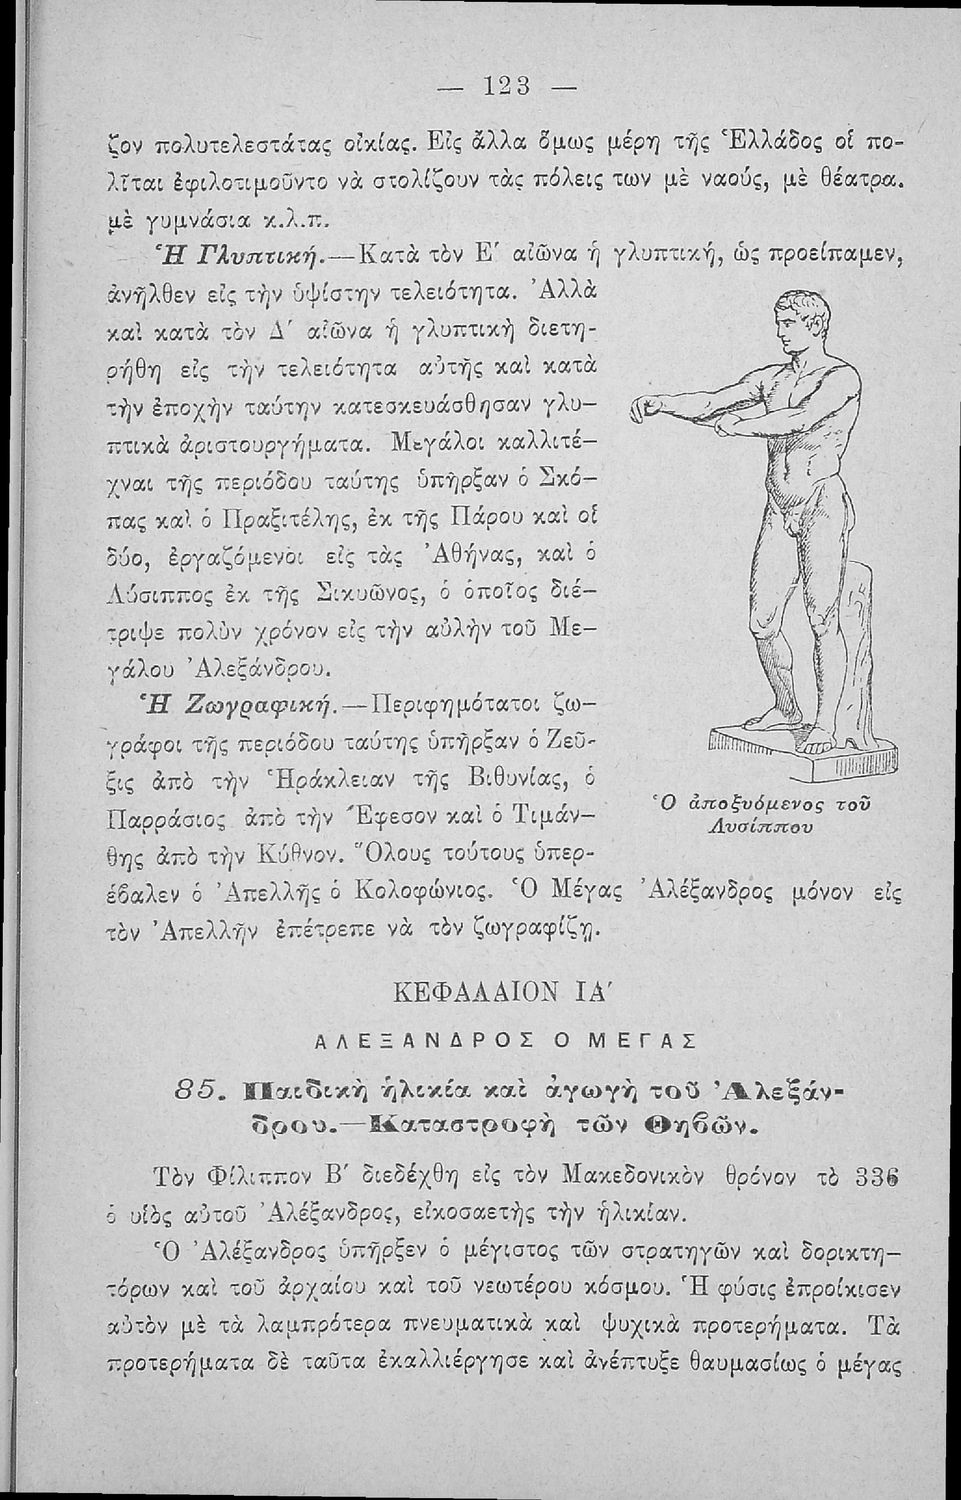 — 123 —
ζον πολυτελεστάτας οἰκίας. Εἰς ἄλλα ὅμως μέρη τῆς Ἑλλάδος οἱ πο-
λῖται ἐφιλοτιμοῦντο νὰ στολίζουν τὰς πόλεις των μὲ ναούς, μὲ θέατρα.
μὲ γυμνάσια κ.λ.π.
Ἡ Γλυπτική.—Κατὰ τὸν Ε′ αἰῶνα ἡ γλυπτική, ὡς προείπαμεν,
ἀνῆλθεν εἰς τὴν ὑψίστην τελειότητα. Ἀλλὰ
καὶ κατὰ τὸν Δ′ αἰῶνα ἡ γλυπτικὴ διετη-
ρήθη εἰς τὴν τελειότητα αὐτῆς καὶ κατὰ
τὴν ἐποχὴν ταύτην κατεσκευάσθησαν γλυ-
πτικὰ ἀριστουργήματα. Μεγάλοι καλλιτέ-
χναι τῆς περιόδου ταύτης ὑπῆρξαν ὁ Σκό-
πας καὶ ὁ Πραξιτέλης, ἐκ τῆς Πάρου καὶ οἱ
δύο, ἐργαζόμενοι εἰς τὰς Ἀθήνας, καὶ ὁ
Λύσιππος ἐκ τῆς Σικυῶνος, ὁ ὁποῖος διέ-
τριψε πολὺν χρόνον εἰς τὴν αὐλὴν τοῦ Με-
γάλου Ἀλεξάνδρου.
Ἡ Ζωγραφική.—Περιφημότατοι ζω-
γράφοι τῆς περιόδου ταύτης ὑπῆρξαν ὁ Ζεῦ-
ξις ἀπὸ τὴν Ἡράκλειαν τῆς Βιθυνίας, ὁ
Παρράσιος ἀπὸ τὴν Ἔφεσον καὶ ὁ Τιμάν-
θης ἀπὸ τὴν Κύθνον. Ὅλους τούτους ὑπερ-
έβαλεν ὁ Ἀπελλῆς ὁ Κολοφώνιος. Ὁ Μέγας Ἀλέξανδρος μόνον εἰς
τὸν Ἀπελλῆν ἐπέτρεπε νὰ τὸν ζωγραφίζῃ.
Ὁ ἀποξυόμενος τοῦ
Λυσίππου
ΚΕΦΑΛΑΙΟΝ ΙΑ′
ΑΛΕΞΑΝΔΡΟΣ Ο ΜΕΓΑΣ
85. Παιδικὴ ἡλικία καὶ ἀγωγὴ τοῦ Ἀλεξάν-
δρου.—Καταστροφὴ τῶν Θηβῶν.
Τὸν Φίλιππον Β′ διεδέχθη εἰς τὸν Μακεδονικὸν θρόνον τὸ 336
ὁ υἱὸς αὐτοῦ Ἀλέξανδρος, εἰκοσαετὴς τὴν ἡλικίαν.
Ὁ Ἀλέξανδρος ὑπῆρξεν ὁ μέγιστος τῶν στρατηγῶν καὶ δορικτη-
τόρων καὶ τοῦ ἀρχαίου καὶ τοῦ νεωτέρου κόσμου. Ἡ φύσις ἐπροίκισεν
αὐτὸν μὲ τὰ λαμπρότερα πνευματικὰ καὶ ψυχικὰ προτερήματα. Τὰ
προτερήματα δὲ ταῦτα ἐκαλλιέργησε καὶ ἀνέπτυξε θαυμασίως ὁ μέγας